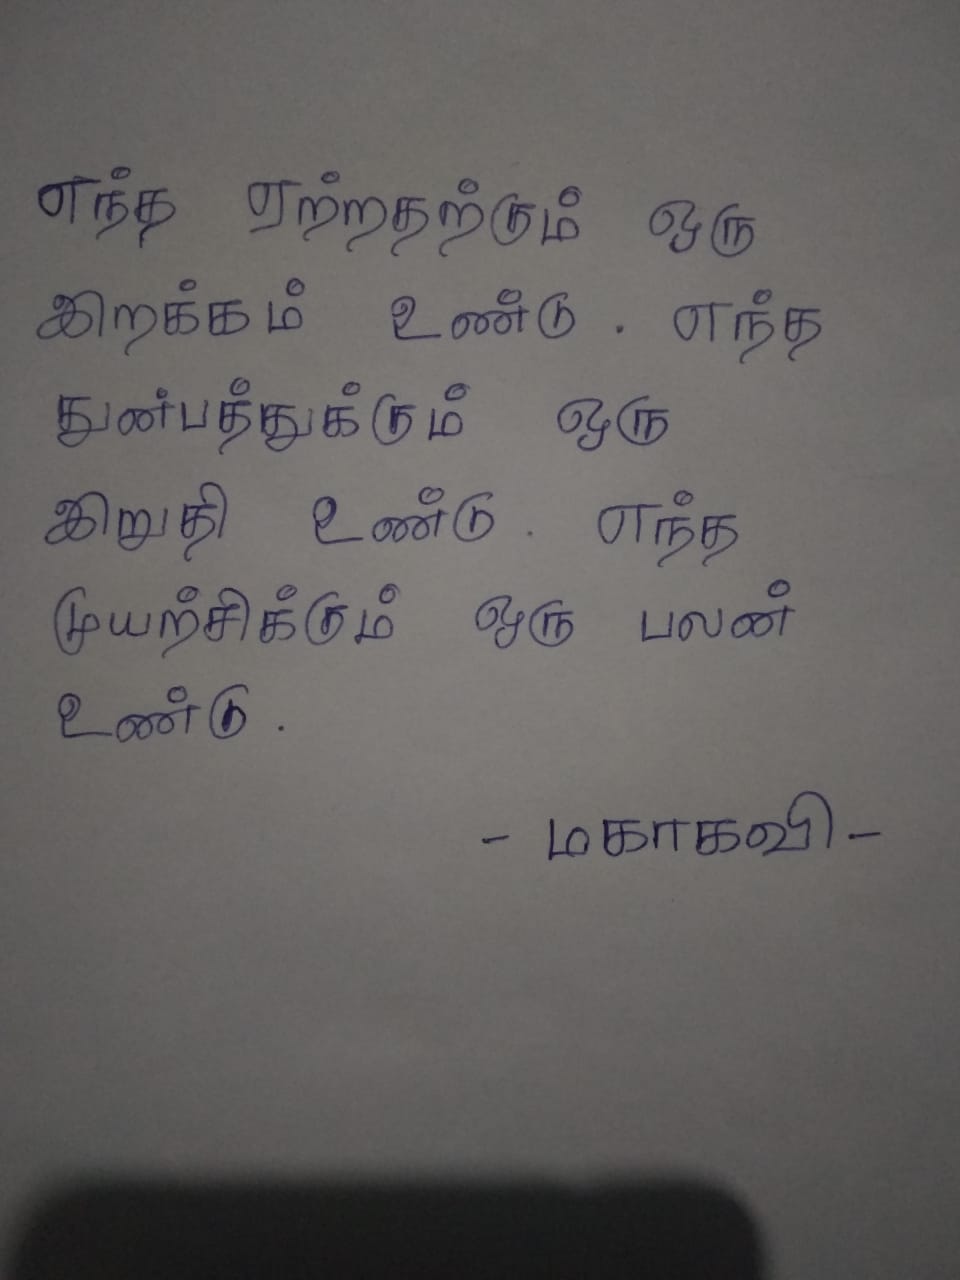 எந்த ஏற்றதற்கும் ஒரு
இறக்கம் உண்டு. எந்த
துன்பத்துக்கும் ஒரு
இறுதி உண்டு. எந்த
முயற்சிக்கும் ஒரு பலன்
உண்டு.
- மகாகவி -